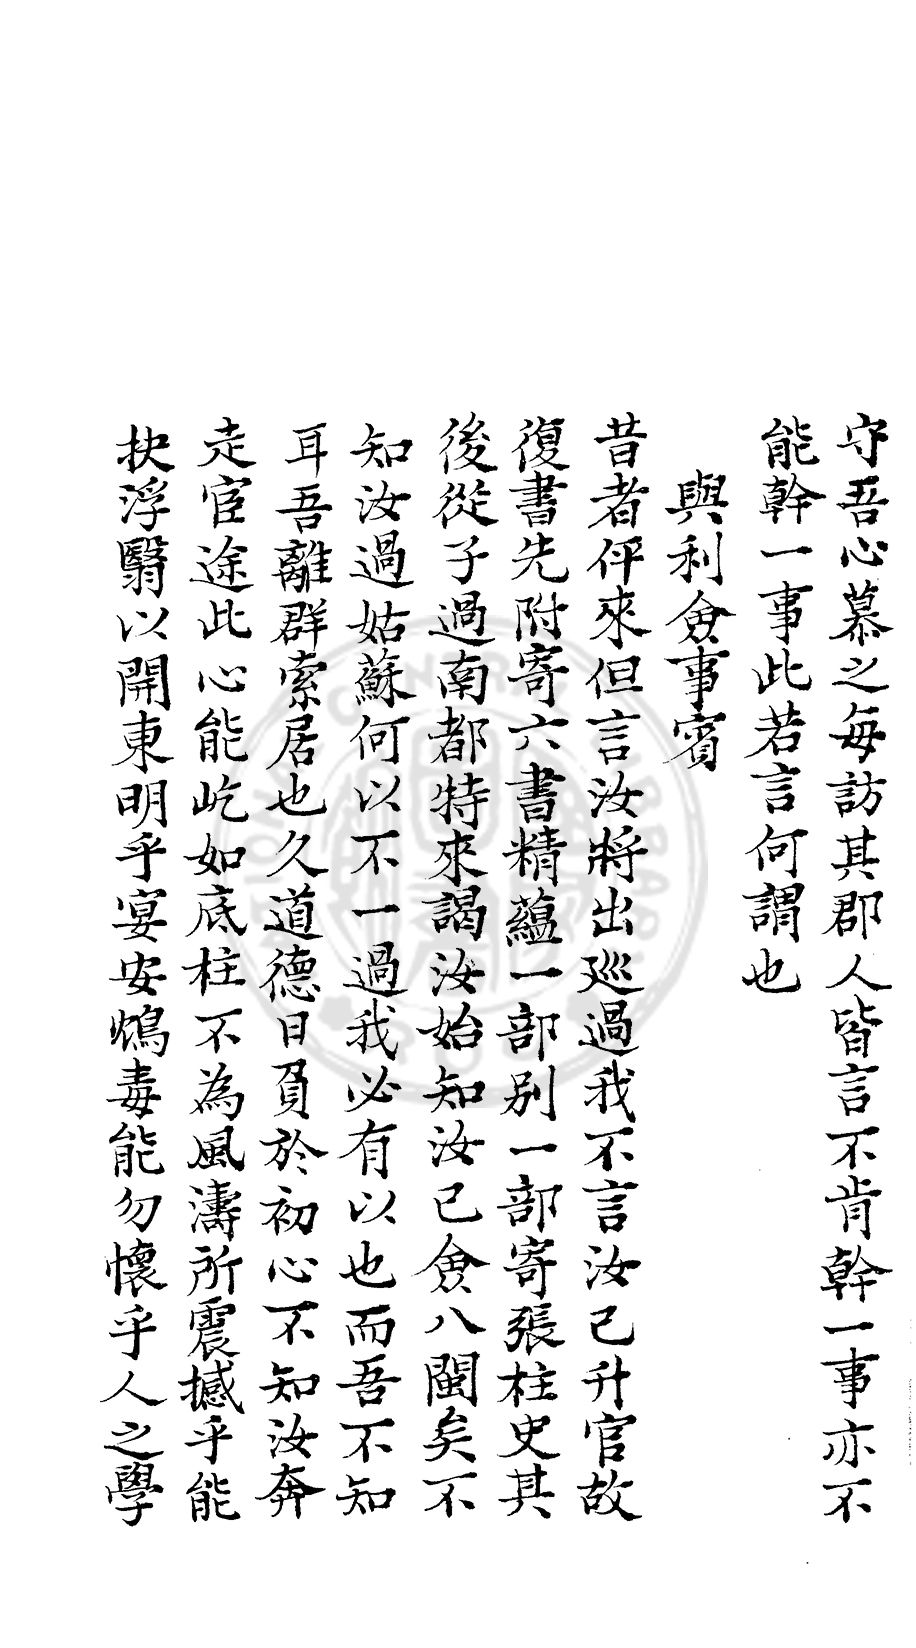 守吾心慕之每訪其郡人皆言不肯幹一事亦不
能幹一事此若言何謂也
與利僉事賓
昔者伻來但言汝將出廵過我不言汝已升官故
復書先附寄六書精蘊一部别一部寄張柱史其
後從子過南都特來謁汝始知汝已僉八閩矣不
知汝過姑蘇何以不一過我必有以也而吾不知
耳吾離群索居也久道德日負於初心不知汝奔
走宦途此心能屹如底柱不為風濤所震撼乎能
抉浮翳以開東明乎宴安鴆毒能勿懷乎人之學